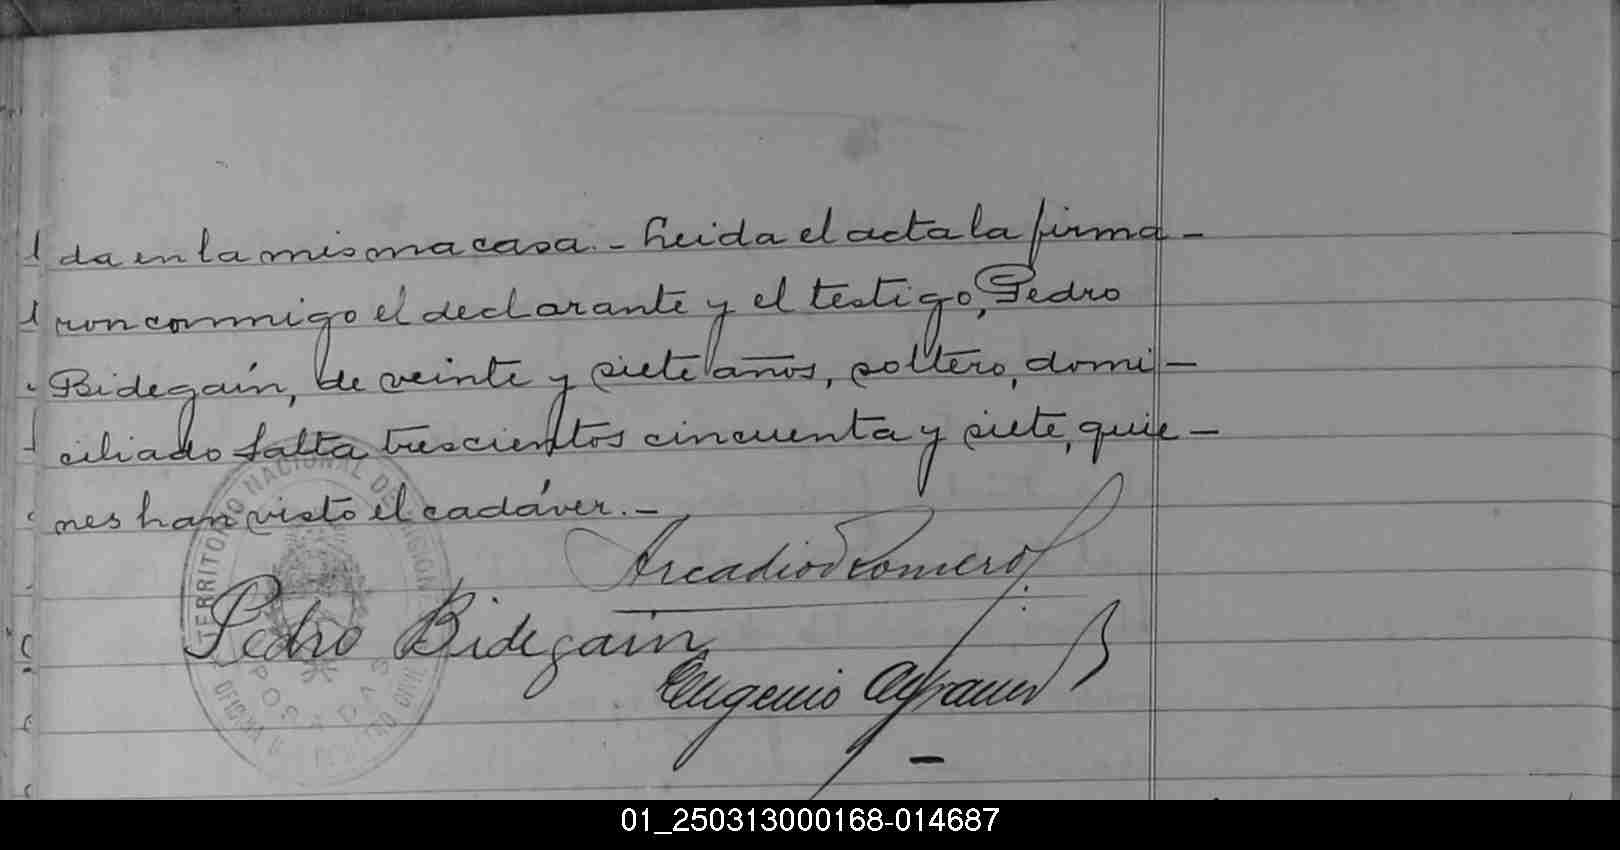 da en la misma casa.- Leida el acta la firma-
ron conmigo el declarante y el testigo, Pedro
Bidegain, de veinte y siete años, soltero, domi-
ciliado Salta trescientos cincuenta y siete, quie-
nes han visto el cadáver.-
Arcadio Romero
Pedro Bidegain
Eugenio
TERRITORIO NACIONAL DE MISIONES
POSADAS
OFICINA
CIVIL
01_250313000168-014687